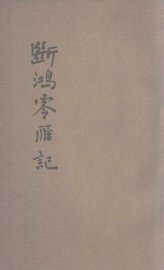 斷鴻零雁記